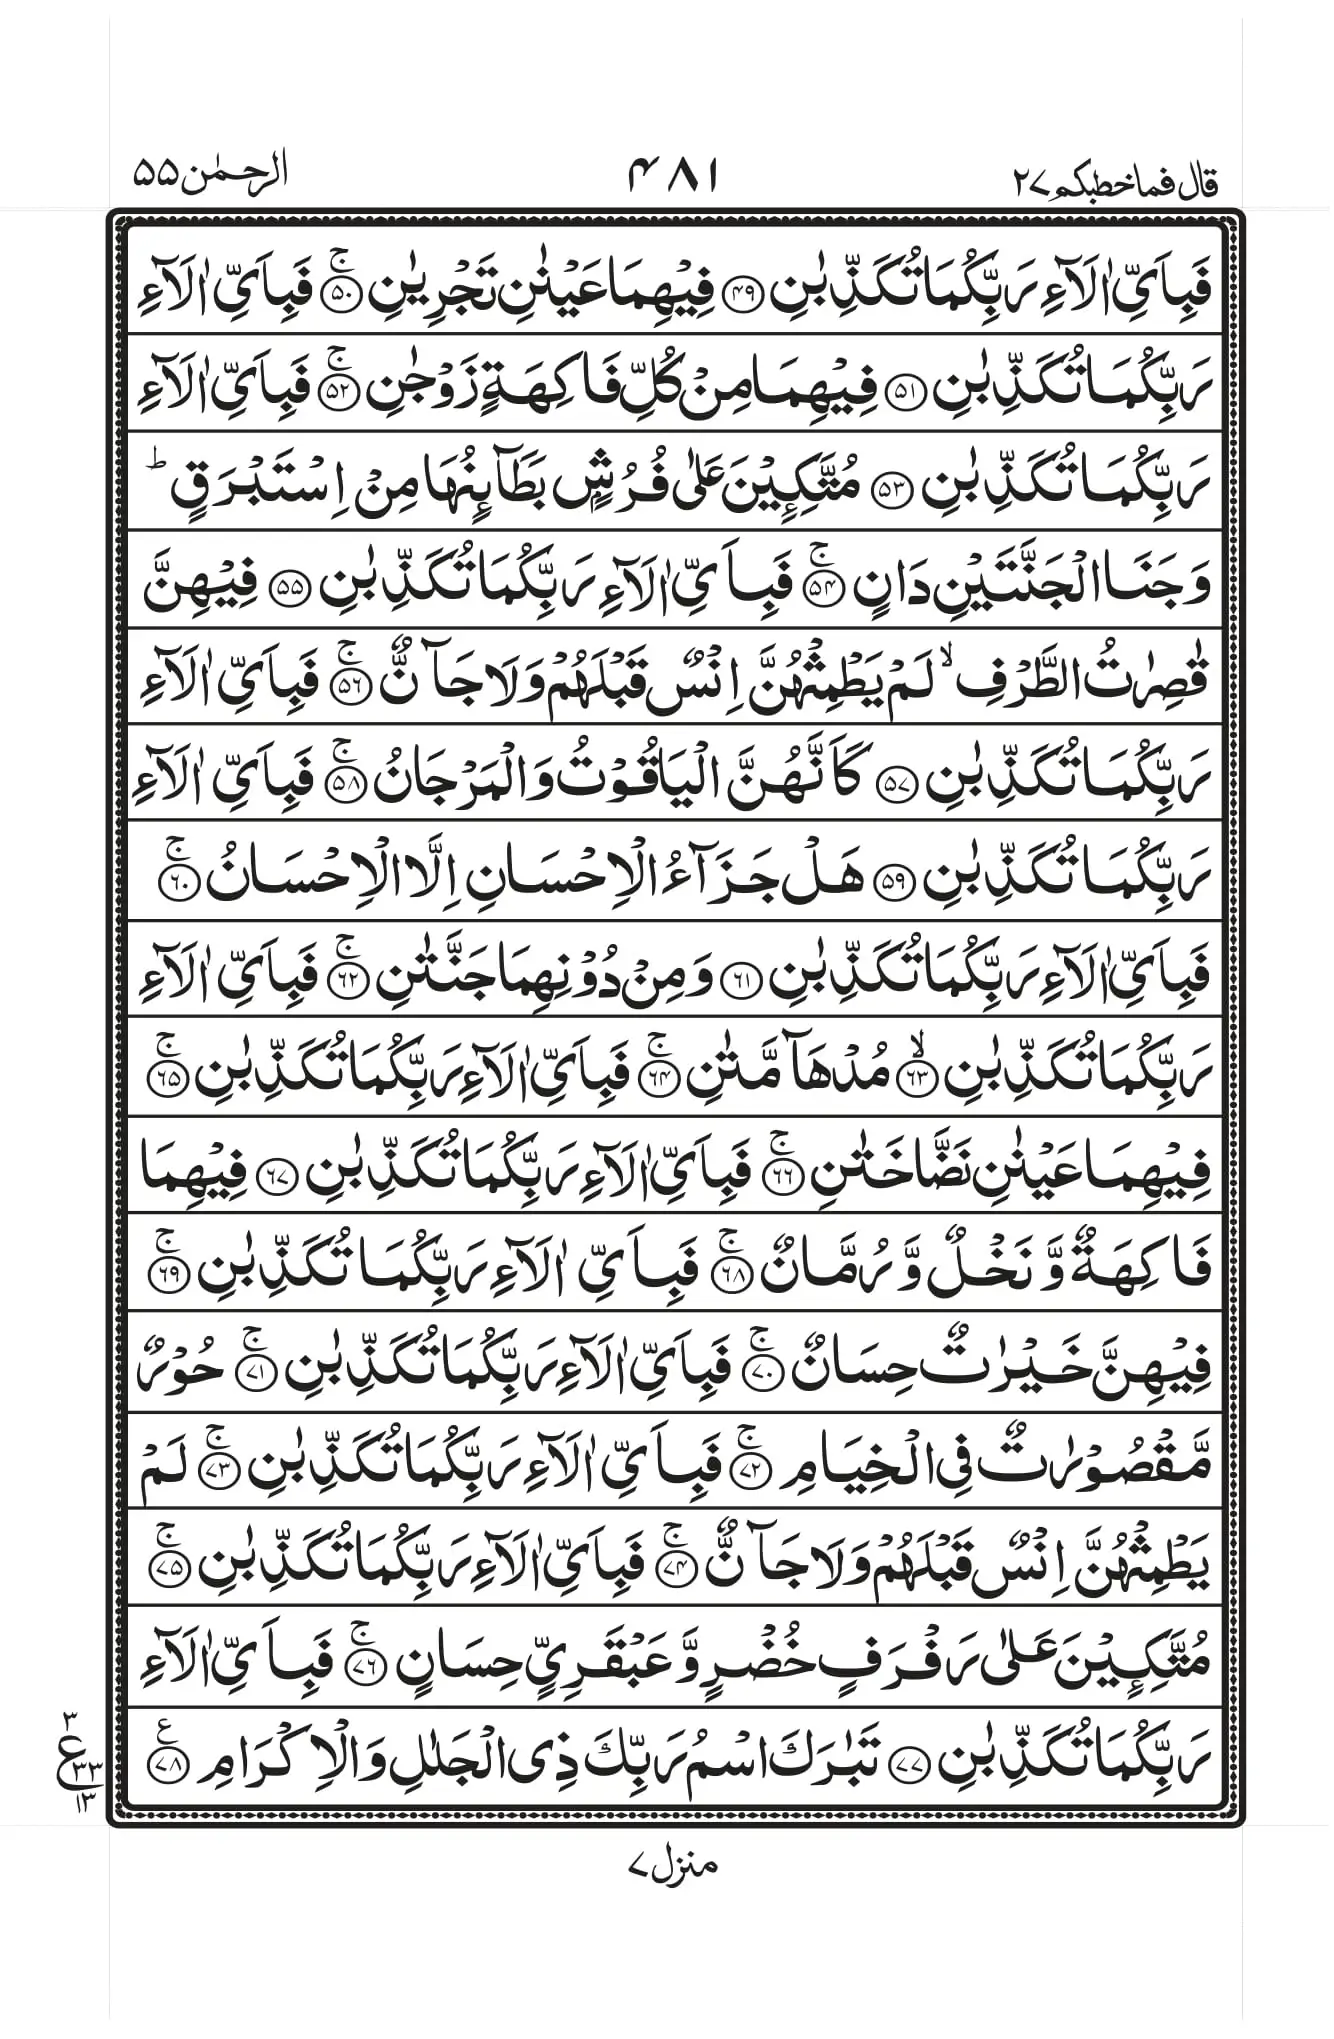 قال فما خطبكم ٢٧
٤٨١
الرحمٰن ٥٥
فَبِاَيِّ اٰلَآءِ رَبِّكُمَا تُكَذِّبٰنِ ۝٤٩ فِيْهِمَا عَيْنٰنِ تَجْرِيٰنِ ۝٥٠ۚ فَبِاَيِّ اٰلَآءِ
رَبِّكُمَا تُكَذِّبٰنِ ۝٥١ فِيْهِمَا مِنْ كُلِّ فَاكِهَةٍ زَوْجٰنِ ۝٥٢ۚ فَبِاَيِّ اٰلَآءِ
رَبِّكُمَا تُكَذِّبٰنِ ۝٥٣ مُتَّكِـِٕيْنَ عَلٰى فُرُشٍۭ بَطَآىِٕنُهَا مِنْ اِسْتَبْرَقٍ ؕ
وَجَنَا الْجَنَّتَيْنِ دَانٍ ۝٥٤ۚ فَبِاَيِّ اٰلَآءِ رَبِّكُمَا تُكَذِّبٰنِ ۝٥٥ فِيْهِنَّ
قٰصِرٰتُ الطَّرْفِ ۙ لَمْ يَطْمِثْهُنَّ اِنْسٌ قَبْلَهُمْ وَلَا جَآنٌّ ۝٥٦ۚ فَبِاَيِّ اٰلَآءِ
رَبِّكُمَا تُكَذِّبٰنِ ۝٥٧ كَاَنَّهُنَّ الْيَاقُوْتُ وَالْمَرْجَانُ ۝٥٨ۚ فَبِاَيِّ اٰلَآءِ
رَبِّكُمَا تُكَذِّبٰنِ ۝٥٩ هَلْ جَزَآءُ الْاِحْسَانِ اِلَّا الْاِحْسَانُ ۝٦٠ۚ
فَبِاَيِّ اٰلَآءِ رَبِّكُمَا تُكَذِّبٰنِ ۝٦١ وَمِنْ دُوْنِهِمَا جَنَّتٰنِ ۝٦٢ۚ فَبِاَيِّ اٰلَآءِ
رَبِّكُمَا تُكَذِّبٰنِ ۝٦٣ۙ مُدْهَآمَّتٰنِ ۝٦٤ۚ فَبِاَيِّ اٰلَآءِ رَبِّكُمَا تُكَذِّبٰنِ ۝٦٥ۚ
فِيْهِمَا عَيْنٰنِ نَضَّاخَتٰنِ ۝٦٦ۚ فَبِاَيِّ اٰلَآءِ رَبِّكُمَا تُكَذِّبٰنِ ۝٦٧ فِيْهِمَا
فَاكِهَةٌ وَّنَخْلٌ وَّرُمَّانٌ ۝٦٨ۚ فَبِاَيِّ اٰلَآءِ رَبِّكُمَا تُكَذِّبٰنِ ۝٦٩ۚ
فِيْهِنَّ خَيْرٰتٌ حِسَانٌ ۝٧٠ۚ فَبِاَيِّ اٰلَآءِ رَبِّكُمَا تُكَذِّبٰنِ ۝٧١ۚ حُوْرٌ
مَّقْصُوْرٰتٌ فِي الْخِيَامِ ۝٧٢ۚ فَبِاَيِّ اٰلَآءِ رَبِّكُمَا تُكَذِّبٰنِ ۝٧٣ۚ لَمْ
يَطْمِثْهُنَّ اِنْسٌ قَبْلَهُمْ وَلَا جَآنٌّ ۝٧٤ۚ فَبِاَيِّ اٰلَآءِ رَبِّكُمَا تُكَذِّبٰنِ ۝٧٥ۚ
مُتَّكِـِٕيْنَ عَلٰى رَفْرَفٍ خُضْرٍ وَّعَبْقَرِيٍّ حِسَانٍ ۝٧٦ۚ فَبِاَيِّ اٰلَآءِ
رَبِّكُمَا تُكَذِّبٰنِ ۝٧٧ تَبٰرَكَ اسْمُ رَبِّكَ ذِي الْجَلٰلِ وَالْاِكْرَامِ ۝٧٨ ع
٣
ع ٣٣
١٣
منزل ٧